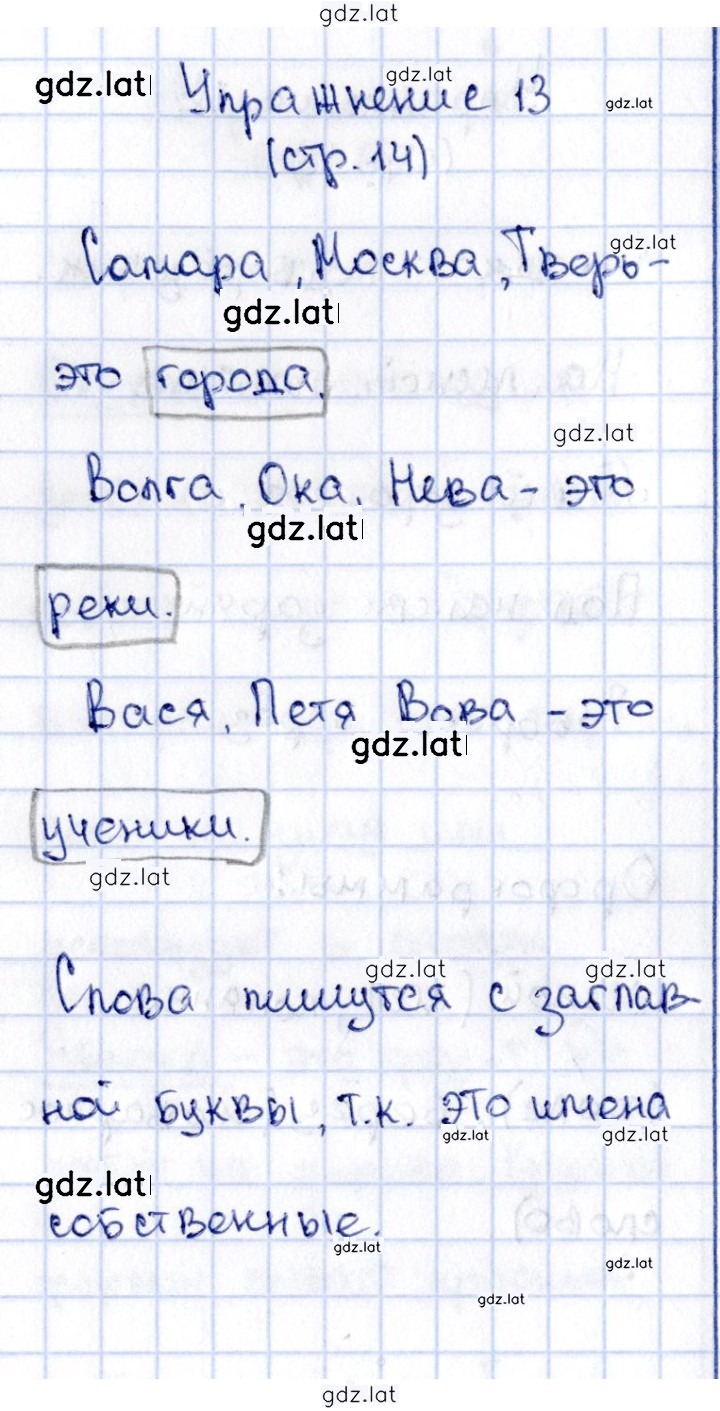 gdz.lat
gdz.lat gdz.lat
Упражнение 13 gdz.lat
(стр. 14)
gdz.lat
Самара, Москва, Тверь-
gdz.lat
это города.
gdz.lat
Волга, Ока, Нева - это
gdz.lat
реки.
Вася, Петя Вова - это
gdz.lat
ученики.
gdz.lat
gdz.lat gdz.lat
Слова пишутся с заглав-
ной буквы, т.к. это имена
gdz.lat gdz.lat
gdz.lat
собственные.
gdz.lat
gdz.lat
gdz.lat
gdz.lat